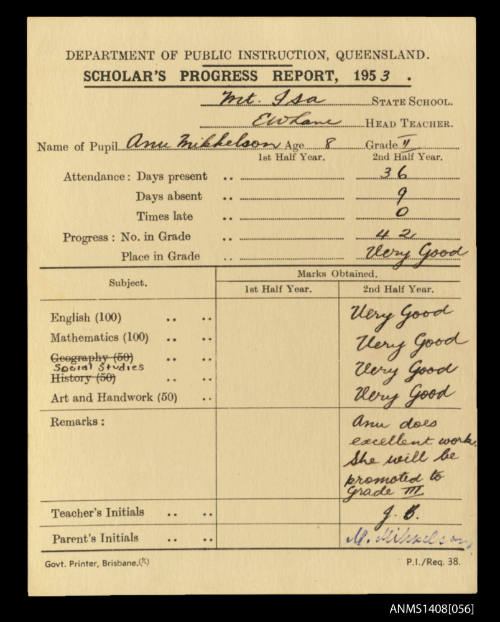 DEPARTMENT OF PUBLIC INSTRUCTION, QUEENSLAND.
SCHOLAR'S PROGRESS REPORT, 1953.
Mt. Isa STATE SCHOOL.
EW Lane HEAD TEACHER.
Name of Pupil Anu Mikkelson Age 8 Grade II
1st Half Year. 2nd Half Year.
Attendance: Days present .. 36
Days absent .. 9
Times late .. 0
Progress: No. in Grade .. 42
Place in Grade .. Very Good
Subject. Marks Obtained.
1st Half Year. 2nd Half Year.
English (100) .. .. Very Good
Mathematics (100) .. .. Very Good
Geography (50) .. ..
Social Studies Very Good
History (50) .. ..
Art and Handwork (50) .. Very Good
Remarks: Anu does
excellent work.
She will be
promoted to
Grade III
Teacher's Initials .. .. J. B.
Parent's Initials .. .. M. Mikkelson
Govt. Printer, Brisbane. P.I./Req. 38.
ANMS1408[056]